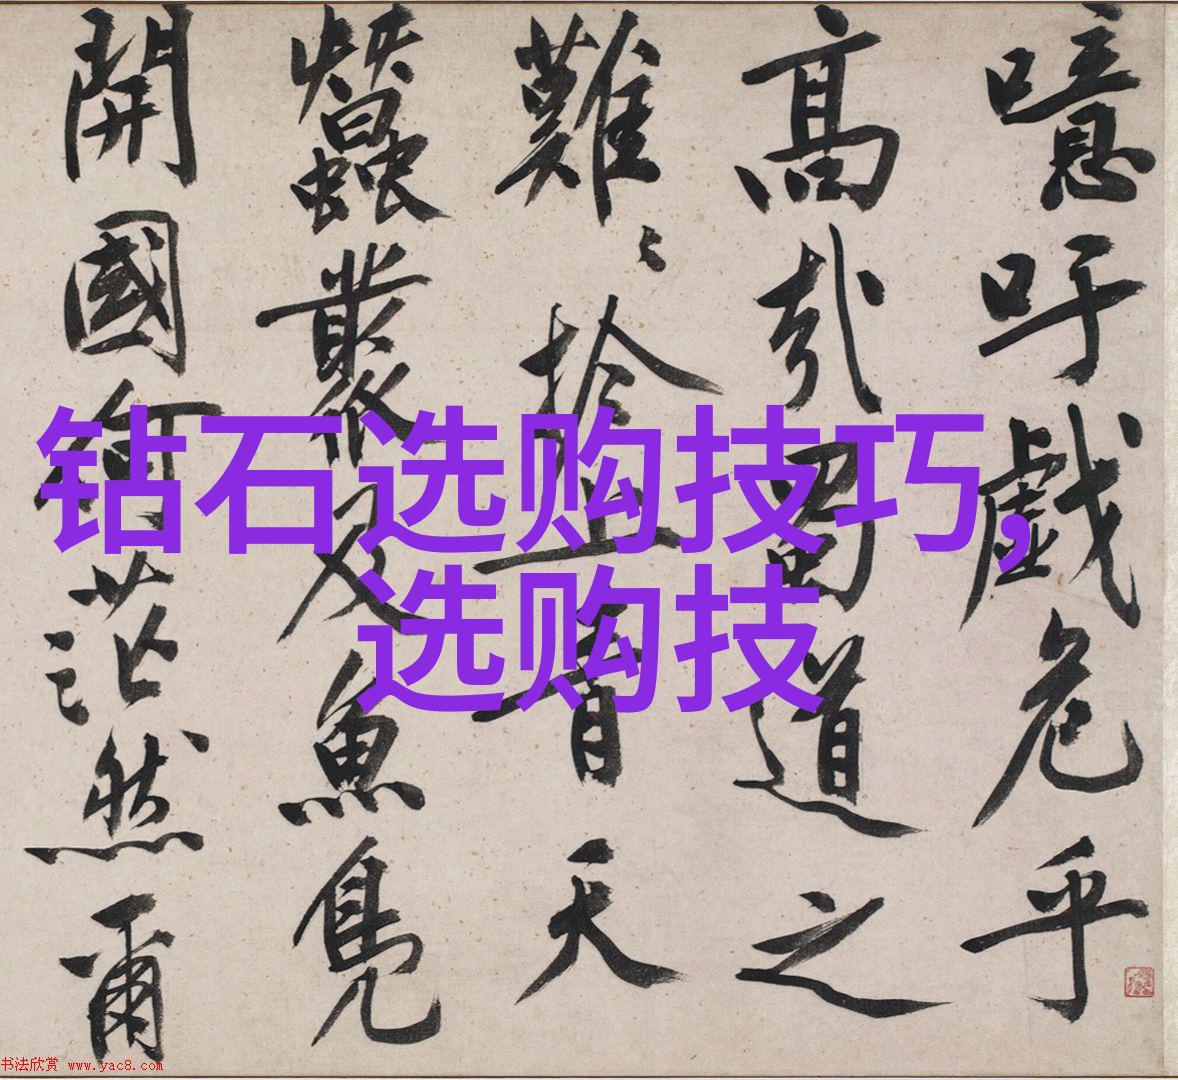 噫吁戲危乎
高哉蜀道之
難〻於上青天
蠶叢及魚鳧
開國何茫然爾
钻石选购技巧,
选购技
书法欣赏 www.yac8.com